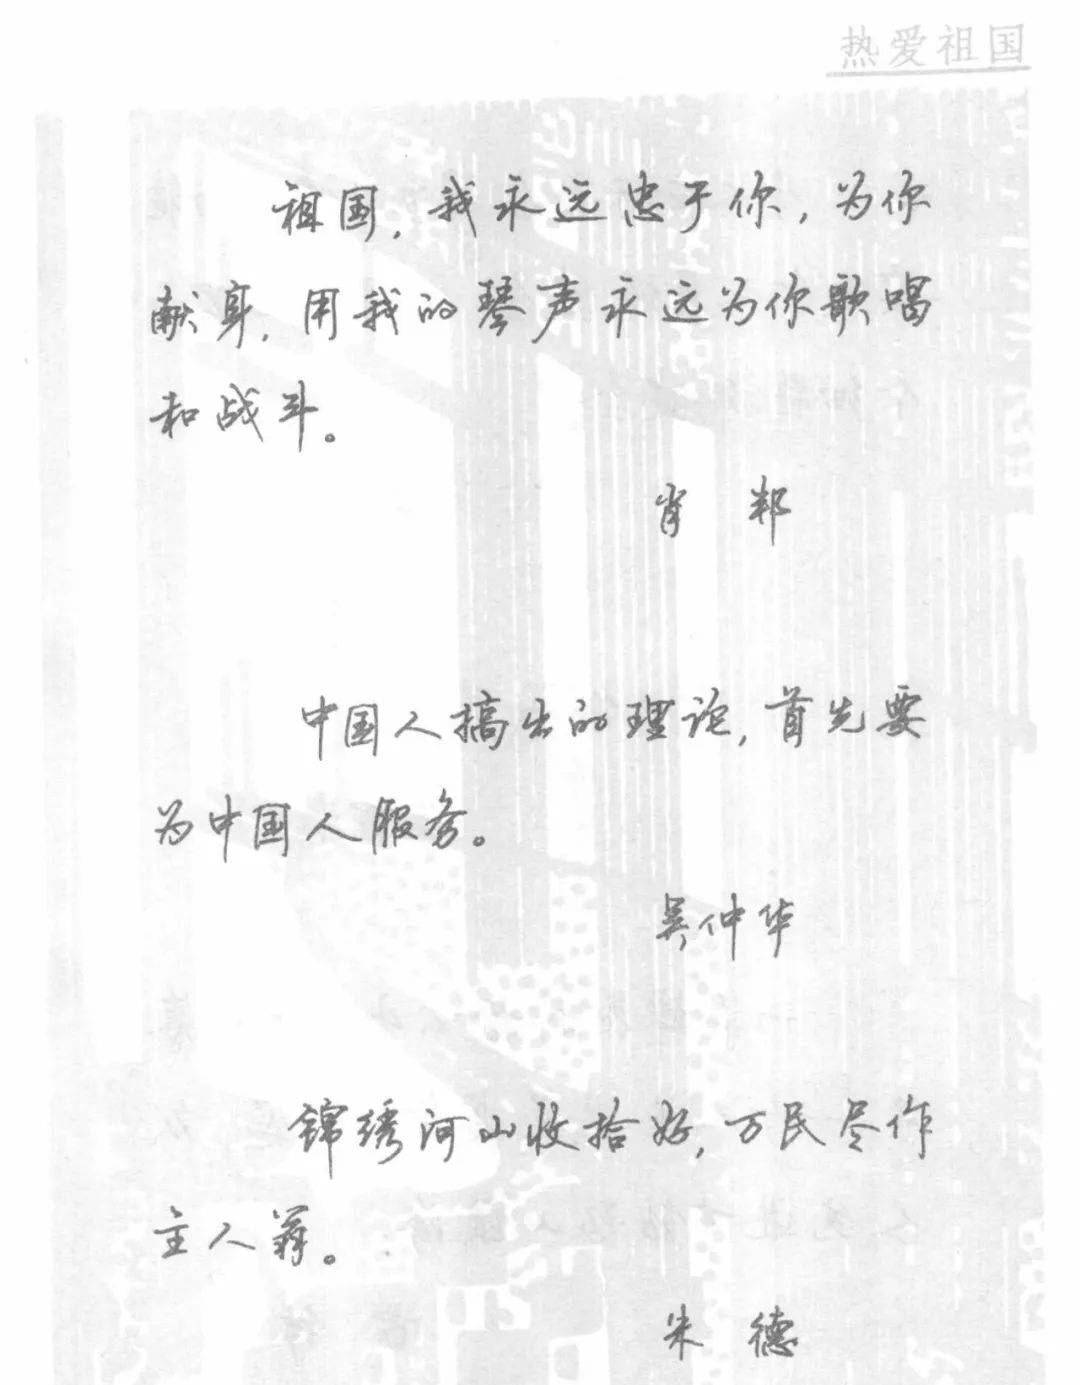 热爱祖国
祖国，我永远忠于你，为你
献身，用我的琴声永远为你歌唱
和战斗。
肖邦
中国人搞出的理论，首先要
为中国人服务。
吴仲华
锦绣河山收拾好，万民尽作
主人翁。
朱德